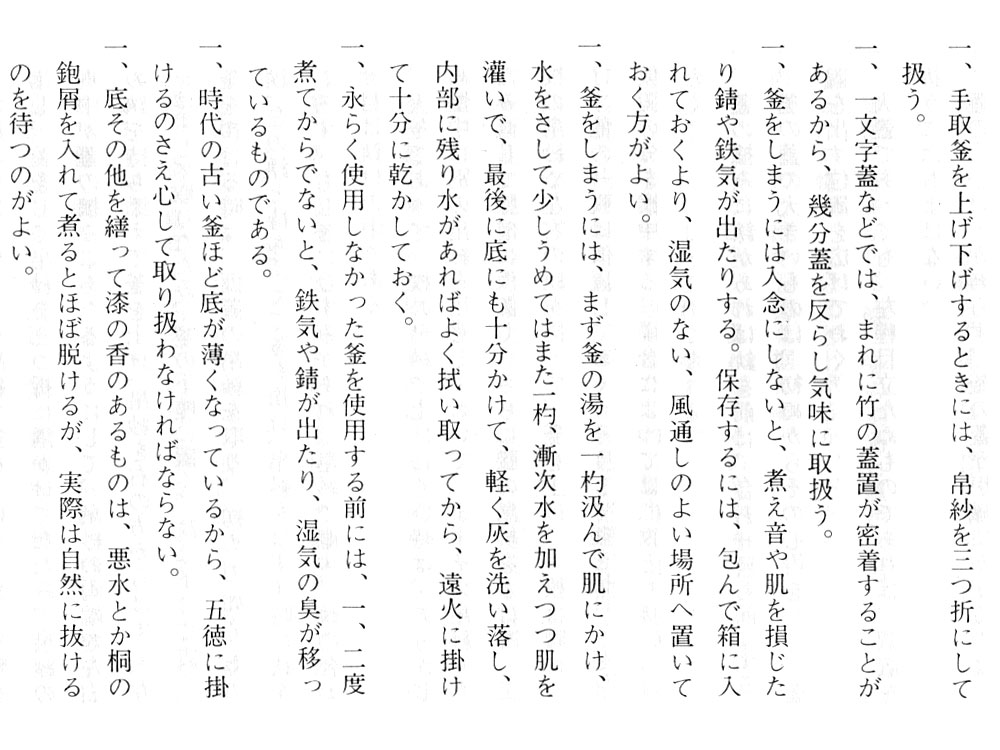 一、手取釜を上げ下げするときには、帛紗を三つ折にして
扱う。
一、一文字蓋などでは、まれに竹の蓋置が密着することが
あるから、幾分蓋を反らし気味に取扱う。
一、釜をしまうには入念にしないと、煮え音や肌を損じた
り錆や鉄気が出たりする。保存するには、包んで箱に入
れておくより、湿気のない、風通しのよい場所へ置いて
おく方がよい。
一、釜をしまうには、まず釜の湯を一杓汲んで肌にかけ、
水をさして少しうめてはまた一杓、漸次水を加えつつ肌を
灌いで、最後に底にも十分かけて、軽く灰を洗い落し、
内部に残り水があればよく拭い取ってから、遠火に掛け
て十分に乾かしておく。
一、永らく使用しなかった釜を使用する前には、一、二度
煮てからでないと、鉄気や錆が出たり、湿気の臭が移っ
ているものである。
一、時代の古い釜ほど底が薄くなっているから、五徳に掛
けるのさえ心して取り扱わなければならない。
一、底その他を繕って漆の香のあるものは、悪水とか桐の
鉋屑を入れて煮るとほぼ脱けるが、実際は自然に抜ける
のを待つのがよい。